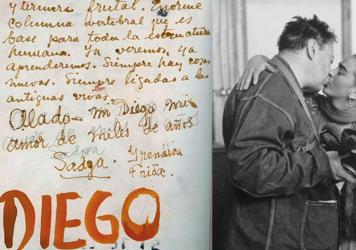 y ternura frutal. Enorme
columna vertebral que es
base para toda la estructura
humana. Ya veremos, ya
aprenderemos. Siempre hay cosas
nuevas. Siempre ligadas a las
antiguas vivas.
Alado – Mi Diego mi
amor de miles de años
Sadga. Yrenáica
Frida.
DIEGO